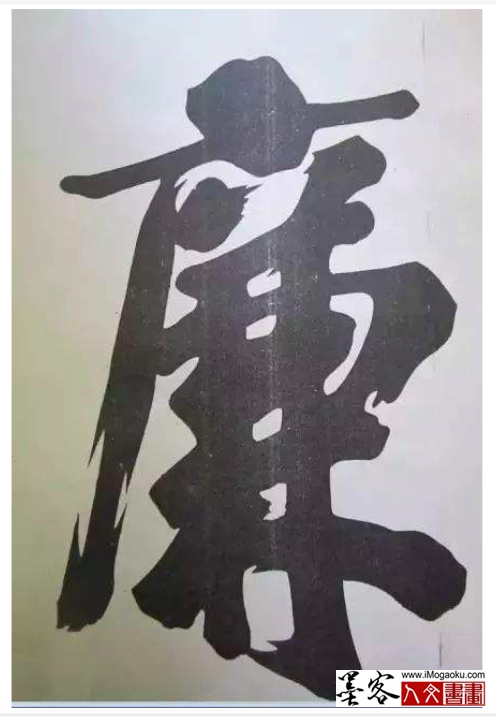 廉
墨客
www.iMogaoku.com
人文書畫